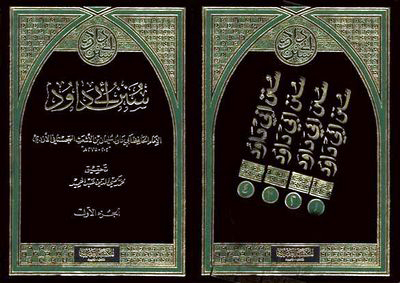 سنن أبي داود
للإمام الحافظ أبي داود سليمان بن الأشعث السجستاني الأزدي
٢٠٢ - ٢٧٥ هـ
تحقيق
محمد محيي الدين عبد الحميد
الجزء الأول
سنن أبي داود
سنن أبي داود
سنن أبي داود
سنن أبي داود
٤
٣
٢
١